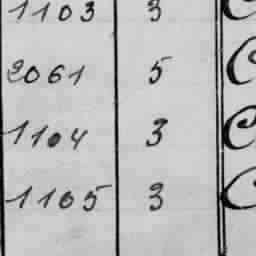 1103 3
2061 5 C
1104 3 C
1105 3 C